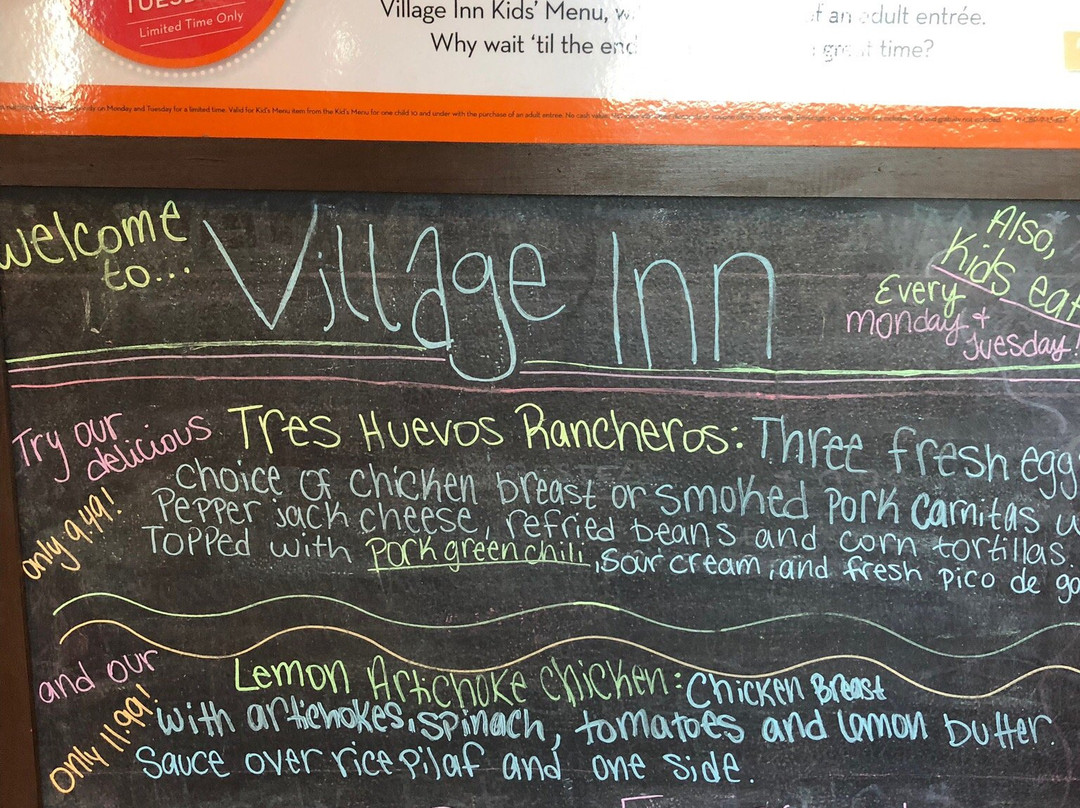 TUES
Limited Time Only
Village Inn Kids' Menu, w
of an adult entrée.
Why wait 'til the end
great time?
on Monday and Tuesday for a limited time. Valid for Kid's Menu item from the Kid's Menu for one child 10 and under with the purchase of an adult entree. No cash value.
welcome
to...
Village Inn
Also,
Kids eat
Every
monday +
Tuesday!
Try our
delicious
only 9.99!
Tres Huevos Rancheros: Three fresh egg
Choice of chicken breast or smoked pork carnitas w
Pepper jack cheese, refried beans and corn tortillas.
Topped with pork green chili, sour cream, and fresh pico de ga
and our
only 11.99!
Lemon Artichoke Chicken: Chicken Breast
with artichokes, spinach, tomatoes and lamon butter.
Sauce over rice pilaf and one side.